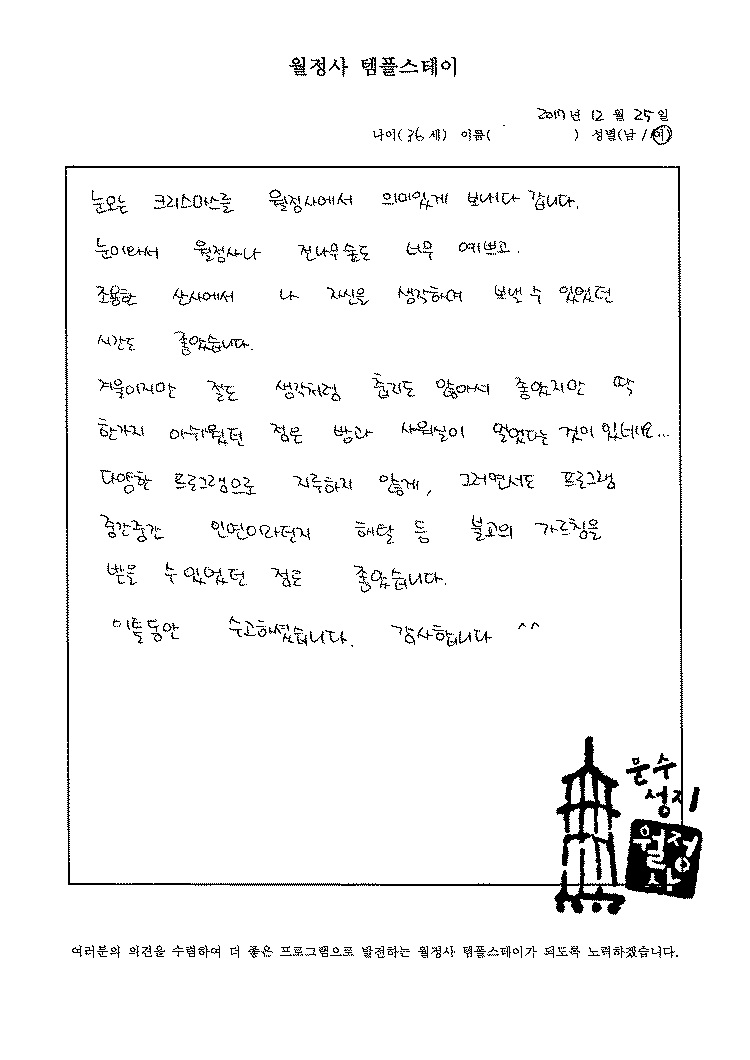 월정사 템플스테이
2017년 12월 25일
나이(36세) 이름( ) 성별(남/여)
눈오는 크리스마스를 월정사에서 의미있게 보내다 갑니다.
눈이와서 월정사나 전나무숲도 너무 예쁘고.
조용한 산사에서 나 자신을 생각하며 보낼 수 있었던
시간도 좋았습니다.
겨울이지만 절도 생각처럼 춥지도 않아서 좋았지만 딱
한가지 아쉬웠던 점은 방과 샤워실이 멀었다는 것이 있네요...
다양한 프로그램으로 지루하지 않게, 그러면서도 프로그램
중간중간 인연이라던지 해탈 등 불교의 가르침을
받을 수 있었던 점은 좋았습니다.
이틀동안 수고하셨습니다. 감사합니다 ^^
문수
성지
월정
사
여러분의 의견을 수렴하여 더 좋은 프로그램으로 발전하는 월정사 템플스테이가 되도록 노력하겠습니다.